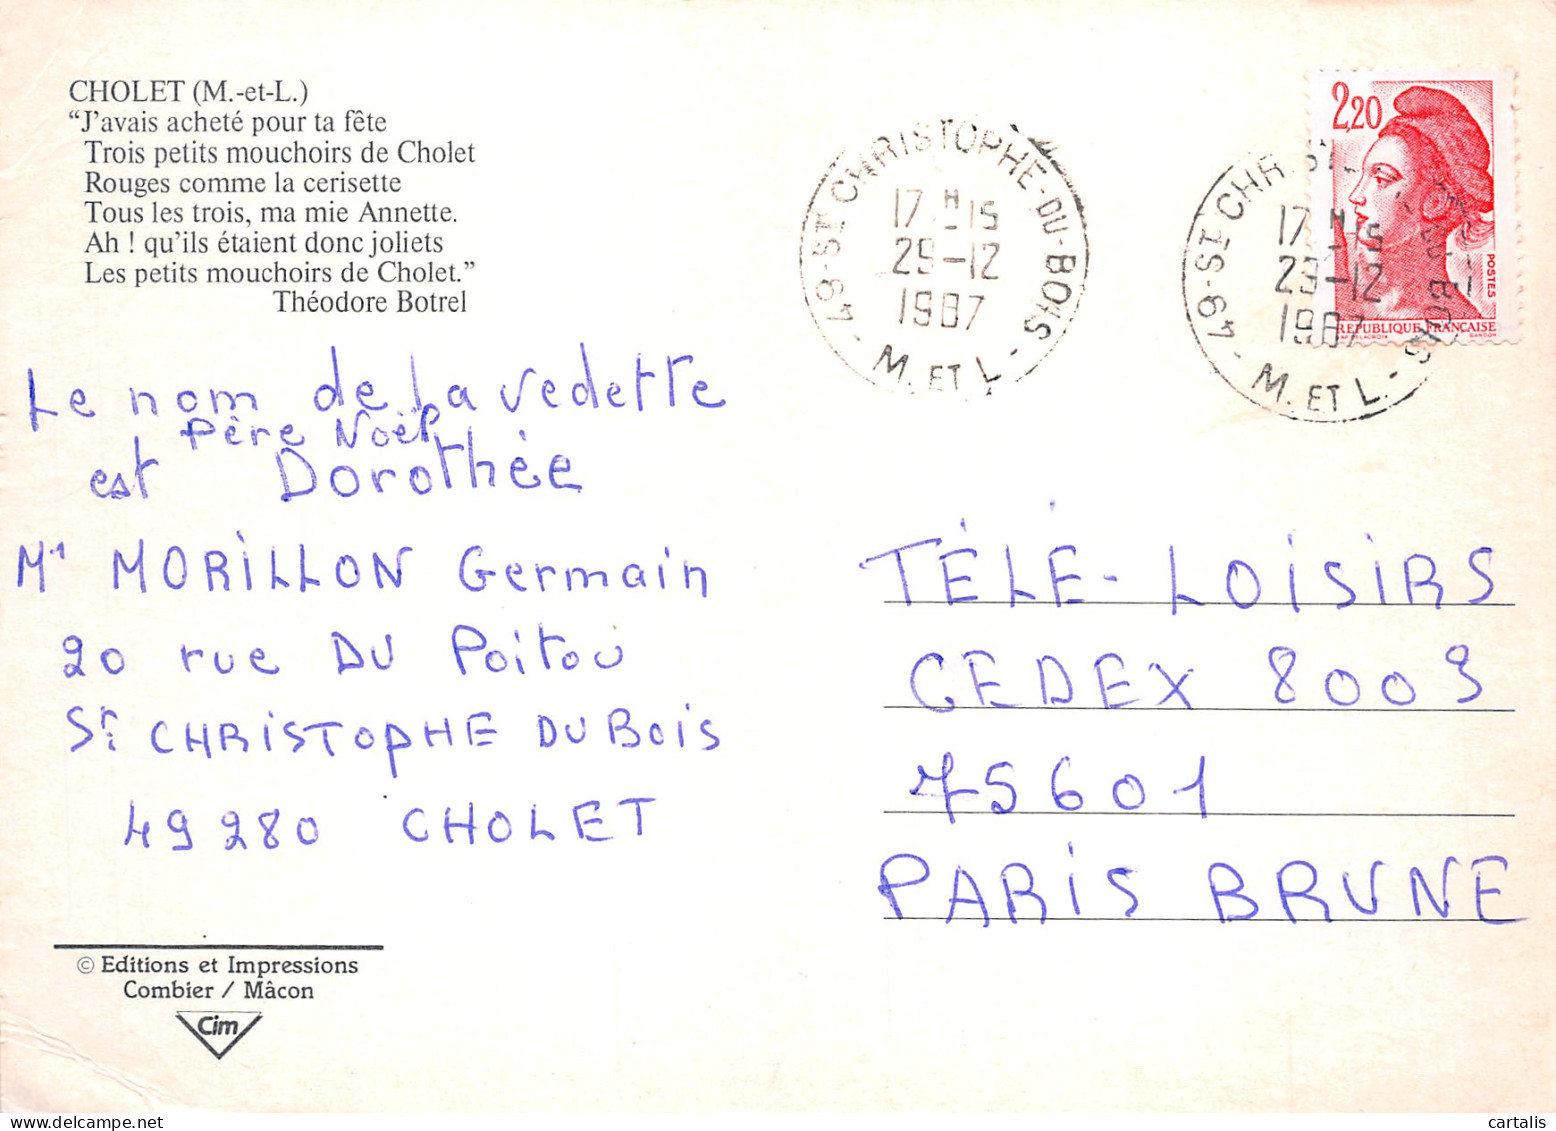 CHOLET (M.-et-L.)
“J’avais acheté pour ta fête
Trois petits mouchoirs de Cholet
Rouges comme la cerisette
Tous les trois, ma mie Annette.
Ah ! qu’ils étaient donc joliets
Les petits mouchoirs de Cholet.”
Théodore Botrel
Le nom de la vedette
Père Noël
est Dorothée
Mr MORILLON Germain
20 rue DU Poitou
St CHRISTOPHE DU BOIS
49280 CHOLET
© Editions et Impressions
Combier / Mâcon
Cim
49-ST CHRISTOPHE-DU-BOIS
17 H 15
29-12
1987
- M. ET L. -
49-ST CHRISTOPHE-DU-BOIS
17 H 15
29-12
1987
- M. ET L. -
2,20
POSTES
REPUBLIQUE FRANÇAISE
GANDON
TÉLÉ-LOISIRS
CEDEX 8009
75601
PARIS BRUNE
delcampe.net
cartalis